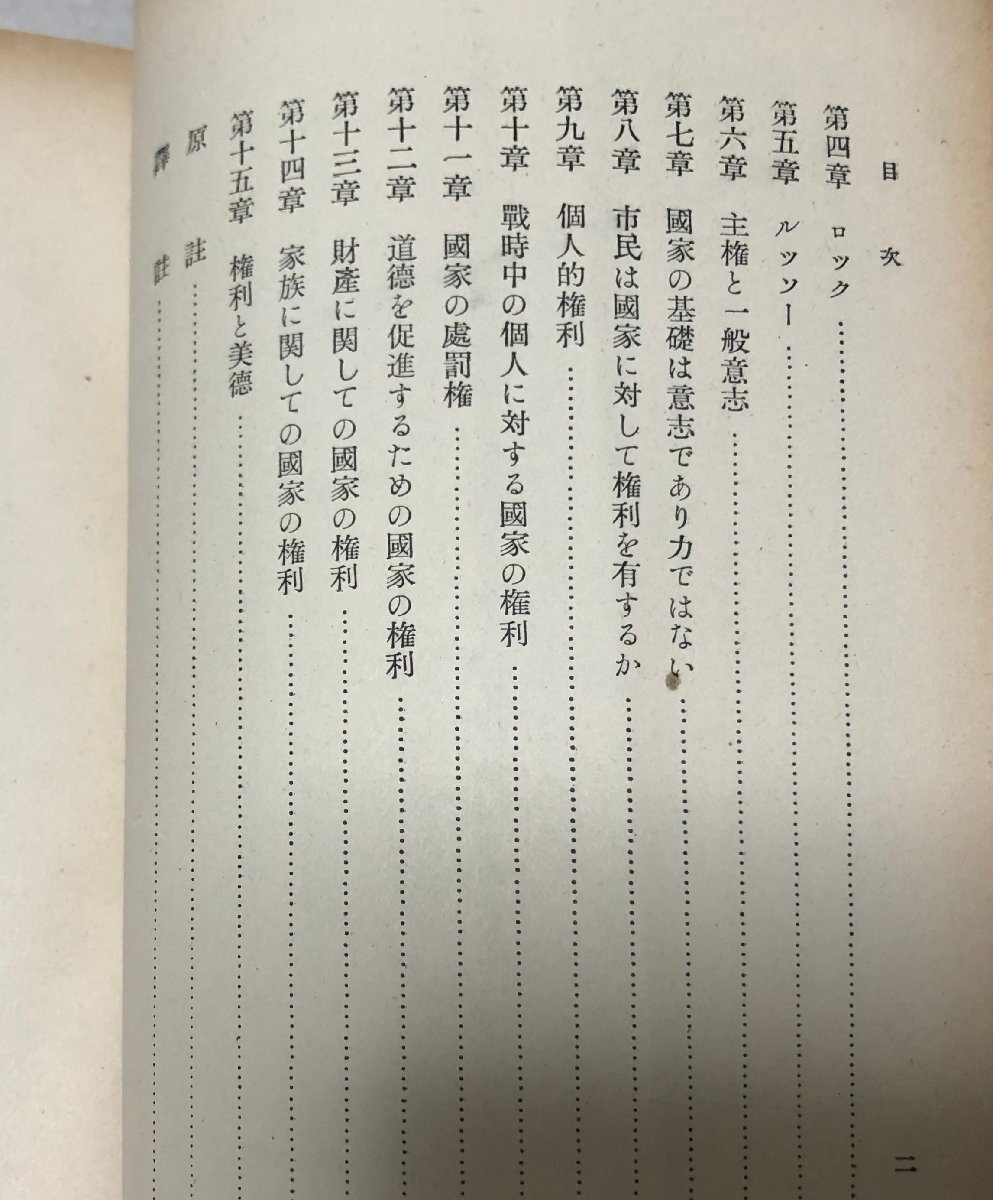 目次
第四章 ロック……………………
第五章 ルッソー……………………
第六章 主権と一般意志……………………
第七章 國家の基礎は意志であり力ではない……………………
第八章 市民は國家に対して権利を有するか……………………
第九章 個人的権利……………………
第十章 戰時中の個人に対する國家の権利……………………
第十一章 國家の處罰権……………………
第十二章 道德を促進するための國家の権利……………………
第十三章 財產に関しての國家の権利……………………
第十四章 家族に関しての國家の権利……………………
第十五章 権利と美德……………………
原註……………………
譯註……………………
二